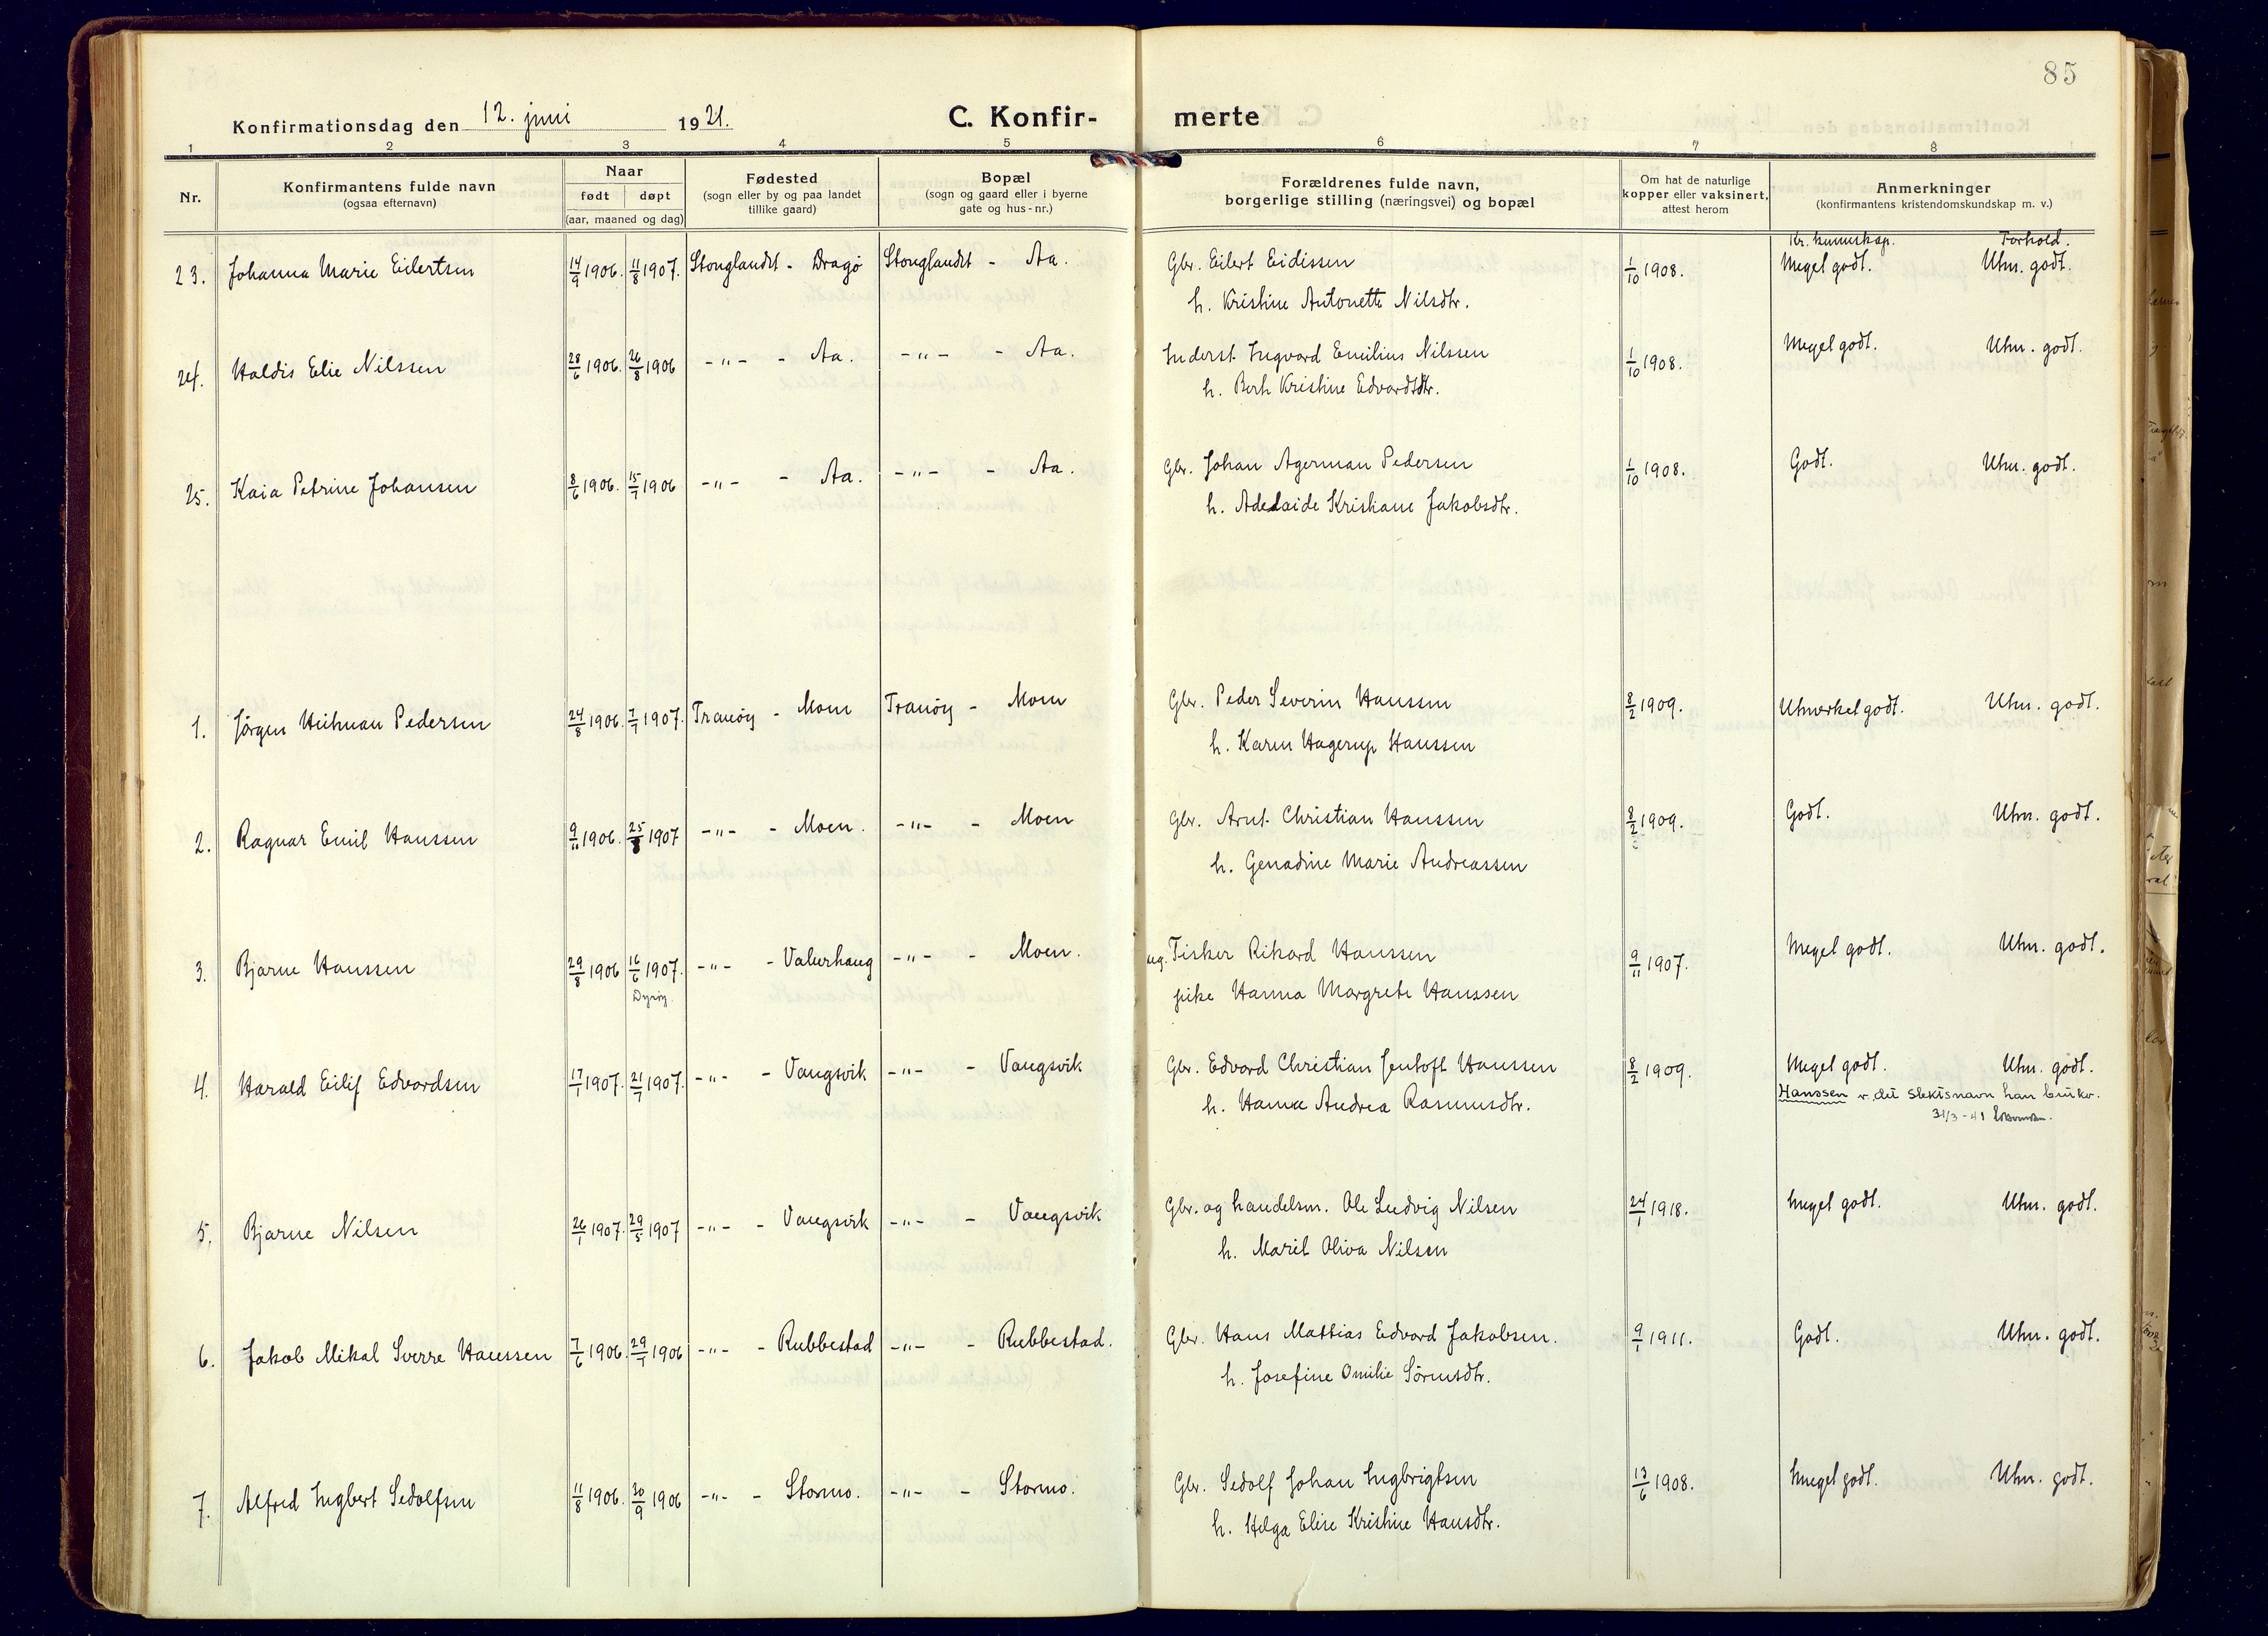 85
Konfirmationsdag den 12. juni 1921.
C. Konfir- merte
1 2 3 4 5 6 7 8
Nr.
Konfirmantens fulde navn
(ogsaa efternavn)
Naar
født døpt
(aar, maaned og dag)
Fødested
(sogn eller by og paa landet
tillike gaard)
Bopæl
(sogn og gaard eller i byerne
gate og hus-nr.)
Forældrenes fulde navn,
borgerlige stilling (næringsvei) og bopæl
Om hat de naturlige
kopper eller vaksinert,
attest herom
Anmerkninger
(konfirmantens kristendomskundskap m. v.)
Kr. kunnskap. Forhold.
23. Johanna Marie Eilertsen 14/9 1906. 11/8 1907. Stonglandet - Dragø Stonglandet - Aa. Gbr. Eilert Eidissen 1/10 1908. Meget godt. Utm. godt.
h. Kristine Antonette Nilsdtr.
24. Haldis Elie Nilssen 28/6 1906. 26/8 1906 -"- - Aa. -"- - Aa. Inderst Ingvard Emilius Nilssen 1/10 1908. Meget godt. Utm. godt.
h. Berh Kristine Edvardsdtr.
25. Kaia Petrine Johansen 8/6 1906. 15/7 1906 -"- - Aa. -"- - Aa. Gbr. Johan Agerman Pedersen 1/10 1908. Godt. Utm. godt.
h. Adelaide Kristiane Jakobsdtr.
1. Jørgen Heitman Pedersen 24/8 1906. 7/7 1907. Tranøy - Moen Tranøy - Moen Gbr. Peder Severin Hanssen 8/2 1909. Utmerket godt. Utm. godt.
h. Karen Hagerup Hanssen
2. Ragnar Emil Hanssen 9/11 1906. 25/8 1907 -"- - Moen. -"- - Moen Gbr. Arnt Christian Hanssen 8/2 1909. Godt. Utm. godt.
h. Genadine Marie Andreassen
3. Bjarne Hanssen 29/8 1906 16/6 1907. -"- - Valerhaug -"- - Moen. ug. Fisker Rikard Hanssen 9/11 1907. Meget godt. Utm. godt.
Dyrøy. pike Hanna Margrete Hanssen
4. Harald Eilif Edvardsen 17/1 1907. 21/7 1907. -"- - Vangsvik -"- - Vangsvik Gbr. Edvard Christian Jentoft Hanssen 8/2 1909. Meget godt. Utm. godt.
h. Hanna Andrea Rasmusdtr. Hanssen er det slektsnavn han bruker.
31/3-41
5. Bjarne Nilsen 26/1 1907. 29/5 1907 -"- - Vangsvik -"- - Vangsvik Gbr. og handelsm. Ole Ludvig Nilsen 24/1 1918. Meget godt. Utm. godt.
h. Marit Oliva Nilsen
6. Jakob Mikal Sverre Hanssen 7/6 1906. 29/7 1906 -"- - Rubbestad -"- - Rubbestad. Gbr. Hans Mathias Edvard Jakobsen. 9/1 1911. Godt. Utm. godt.
h. Josefine Omilie Sørensdtr.
7. Alfred Ingbert Sedolfsen 11/8 1906. 30/9 1906 -"- - Stormo. -"- - Stormo. Gbr. Sedolf Johan Ingbrigtsen 13/6 1908. Meget godt. Utm. godt.
h. Helga Elise Kristine Hansdtr.